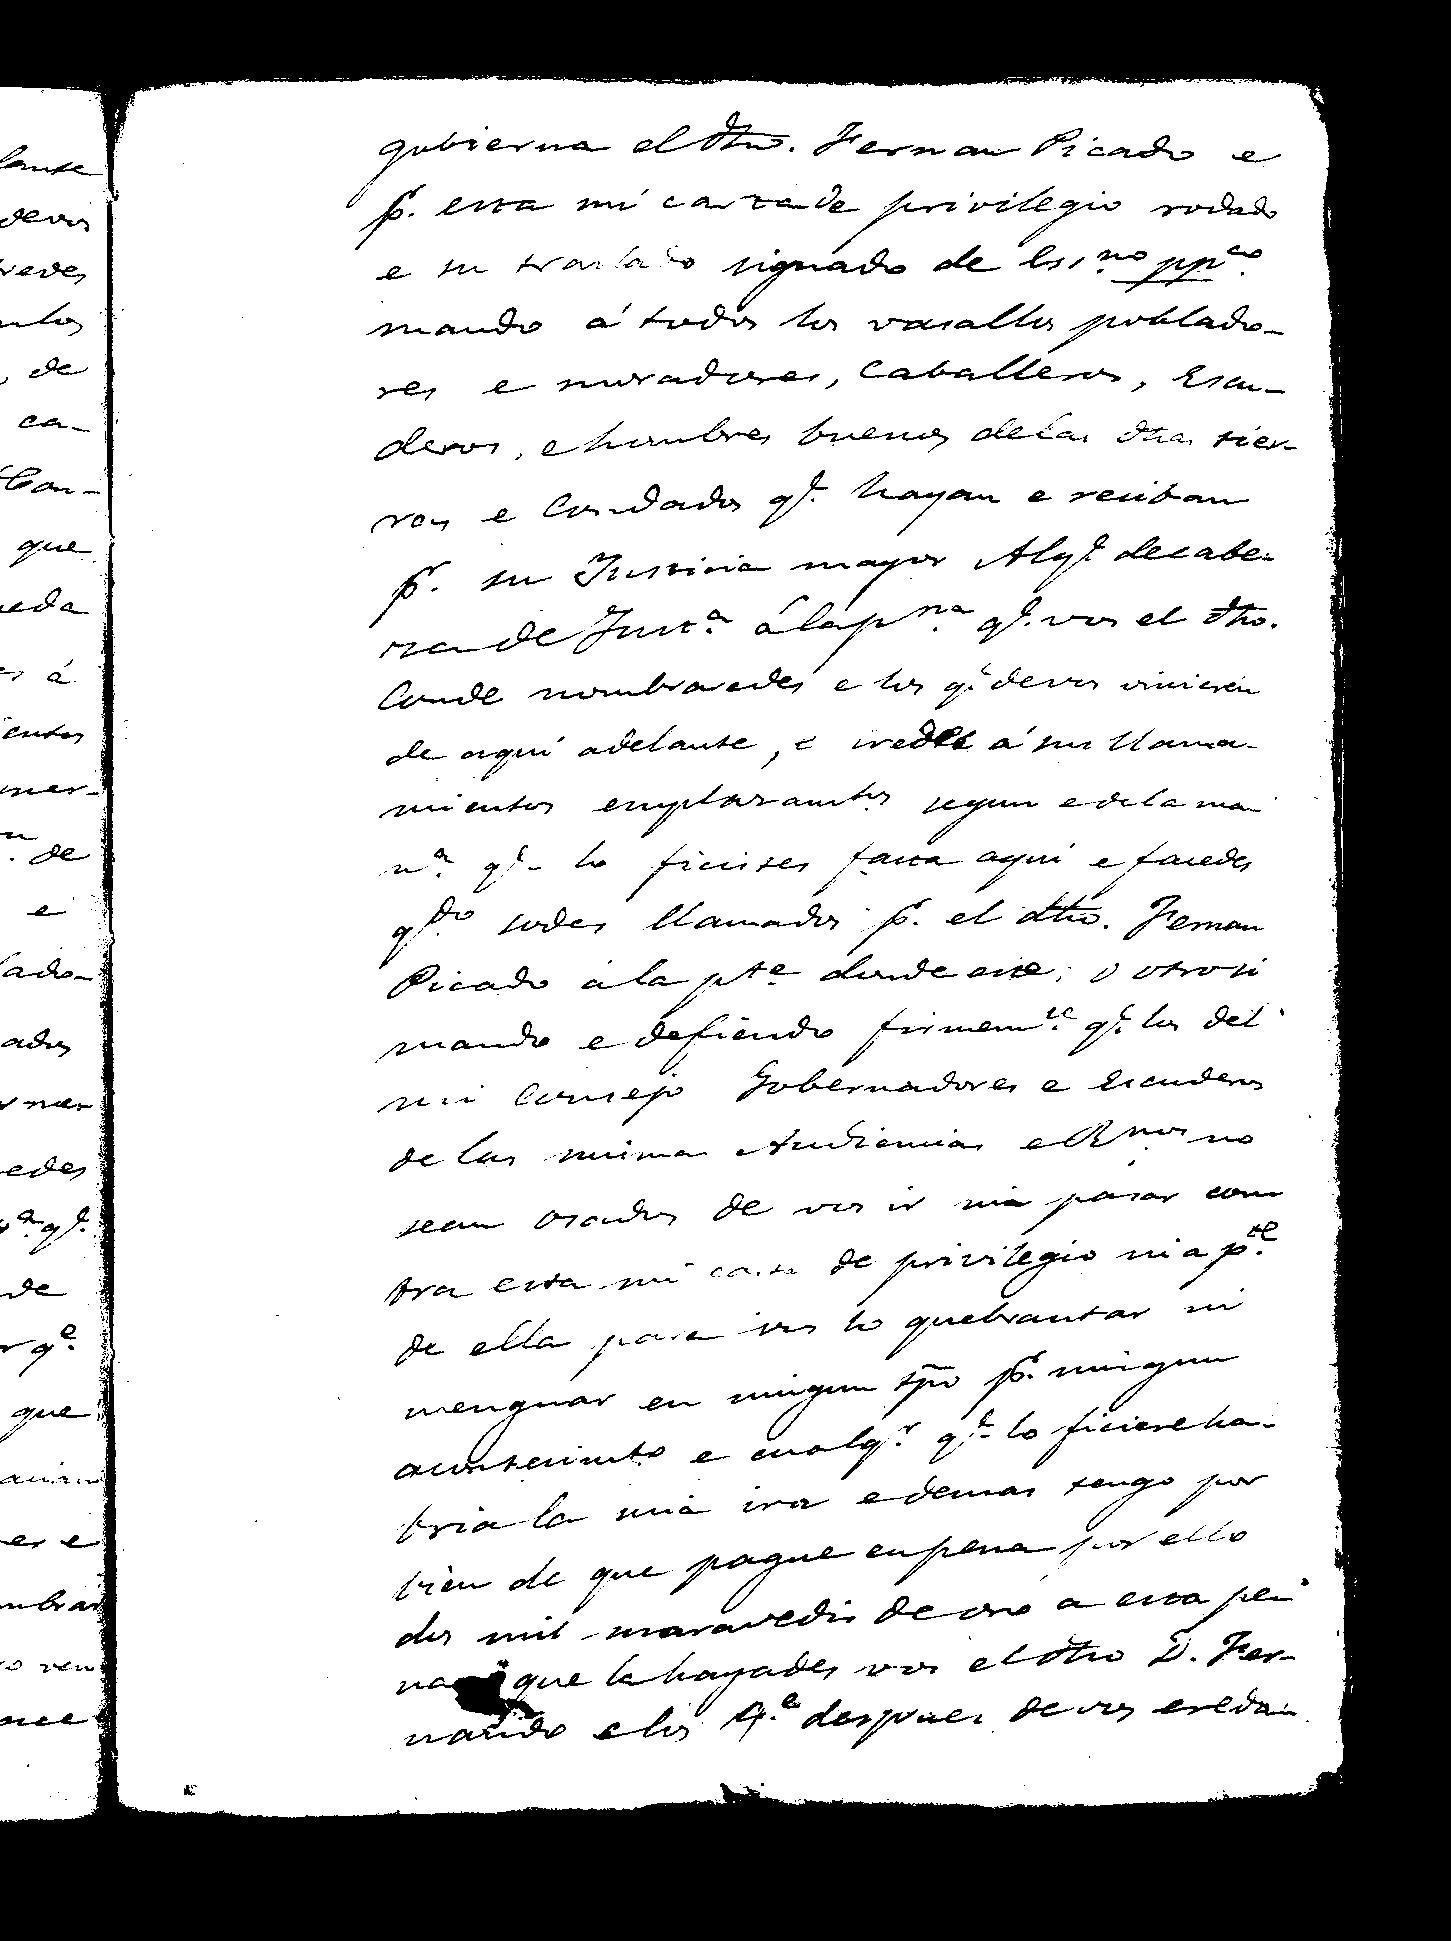 gobierna el dho. Fernan Picado e
pr. esta mi carta de privilegio rodado
e su traslado signado de Essno ppco.
mando á todos los vasallos poblado-
res e moradores, Caballeros, Escu-
deros, e hombres buenos de las dhas tier-
ras e Condados qe. hayan e reciban
pr. su Justicia mayor Algl. de cabe-
za de Justa. á la pna. qe. vos el dho.
Conde nombraredes e los qe. de vos vinieren
de aqui adelante, e iredes á sus llama-
mientos emplazamtos segun e de la ma-
na. qe. lo ficistes fasta aqui e facedes
qdo sodes llamados pr. el dho. Fernan
Picado á la pte. donde este; o otrosi
mando e defiendo firmemte. qe. los del
mi Consejo Gobernadores e Escuderos
de las misma Audiencias e Rnos. no
sean osados de vos ir nin pasar con-
tra esta mi carta de privilegio ni a pte.
de ella para vos lo quebrantar ni
menguar en ningun tpo pr. ningun
acontecimto e cualqr. qe. lo ficiere ha-
bria la mia ira e demas tengo por
bien de que pague en pena por ello
dos mil maravedis de oro a esta pe-
na que la hayades vos el dho D. Fer-
nando e los qe. despues de vos ereda-